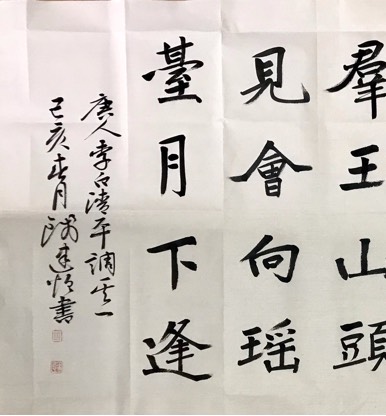 羣王山頭
見會向瑶
臺月下逢
唐人李白清平調其一
己亥春月書